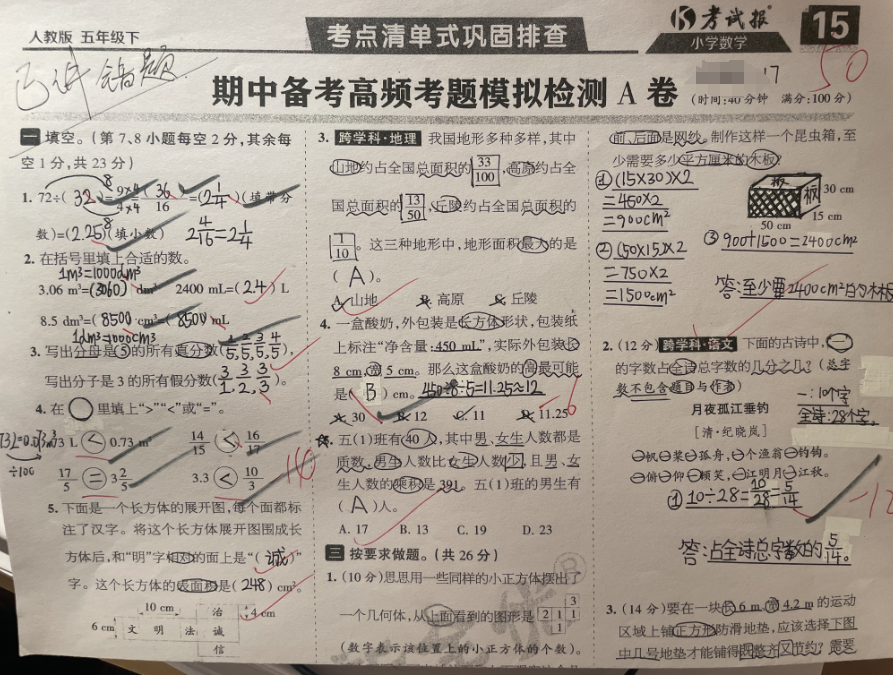 人教版 五年级下
考点清单式巩固排查
考试报
小学数学
15
错题
50
期中备考高频考题模拟检测 A 卷
(时间:40分钟 满分:100分)
一 填空。(第7、8小题每空2分,其余每
空1分,共23分)
1. 72÷(32)=9×4/4×4=(36)/16=(2 1/4)(填带分
数)=(2.25)(填小数) 2 4/16=2 1/4
2. 在括号里填上合适的数。
1m³=1000dm³
3.06 m³=(3060) dm³ 2400 mL=(2.4) L
8.5 dm³=(8500) cm³=(8500) mL
1dm³=1000cm³
3. 写出分母是5的所有真分数(1/5, 2/5, 3/5, 4/5),
写出分子是3的所有假分数(3/1, 3/2, 3/3)。
4. 在○里填上">""<"或"="。
<0.73 m³ 14/15<16/17
÷100
17/5=3 2/5 3.3<10/3
5. 下面是一个长方体的展开图,每个面都标
注了汉字。将这个长方体展开图围成长
方体后,和"明"字相对的面上是"(诚)"
字。这个长方体的表面积是(248) cm²。
10 cm 治 4 cm
6 cm 文 明 法 诚
信
3. 跨学科·地理 我国地形多种多样,其中
山地约占全国总面积的33/100,高原约占全
国总面积的13/50,丘陵约占全国总面积的
1/10。这三种地形中,地形面积最大的是
(A)。
A. 山地 B. 高原 C. 丘陵
4. 一盒酸奶,外包装是长方体形状,包装纸
上标注"净含量:450 mL",实际外包装长
8 cm,宽5 cm。那么这盒酸奶的高最可能
是(B) cm。450÷8÷5=11.25≈12
A. 30 B. 12 C. 11 D. 11.25
5. 五(1)班有40人,其中男、女生人数都是
质数,男生人数比女生人数少,且男、女
生人数的乘积是391。五(1)班的男生有
(A)人。
A. 17 B. 13 C. 19 D. 23
三 按要求做题。(共26分)
1. (10分)思思用一些同样的小正方体摆出了
一个几何体,从上面看到的图形是 3 2 1 1 1
(数字表示该位置上的小正方体的个数)。
前、后面是网纱。制作这样一个昆虫箱,至
少需要多少平方厘米的木板?
①(15×30)×2
=450×2
=900cm²
板 板 30 cm
15 cm
50 cm
②(50×15)×2
=750×2
=1500cm²
③900+1500=2400cm²
答:至少要2400cm²的木板
2. (12分)跨学科·语文 下面的古诗中,"一"
的字数占全诗总字数的几分之几?(总字
数不包含题目与作者)
一:10个字
全诗:28个字
月夜孤江垂钓
[清·纪晓岚]
一帆一桨一孤舟,一个渔翁一钓钩。
一俯一仰一顿笑,一江明月一江秋。
①10÷28=10/28=5/14
答:占全诗总字数的5/14。
3. (14分)要在一块长6 m,宽4.2 m的运动
区域上铺正方形防滑地垫,应该选择下图
中几号地垫才能铺得既整齐又节约?需要